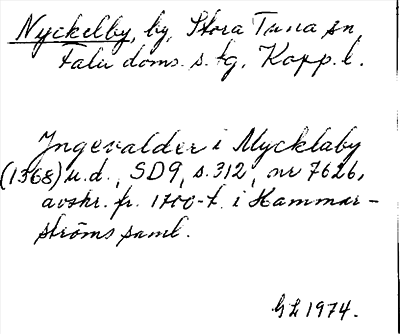 Nyckelby, by, Stora Tuna sn,
Falu doms. s. tg, Kopp. l.
Ingevalder i Mycklaby
(1368) u.d., SD9, s. 312, nr 7626,
avskr. fr. 1700-t. i Hammar-
ströms saml.
GL 1974.